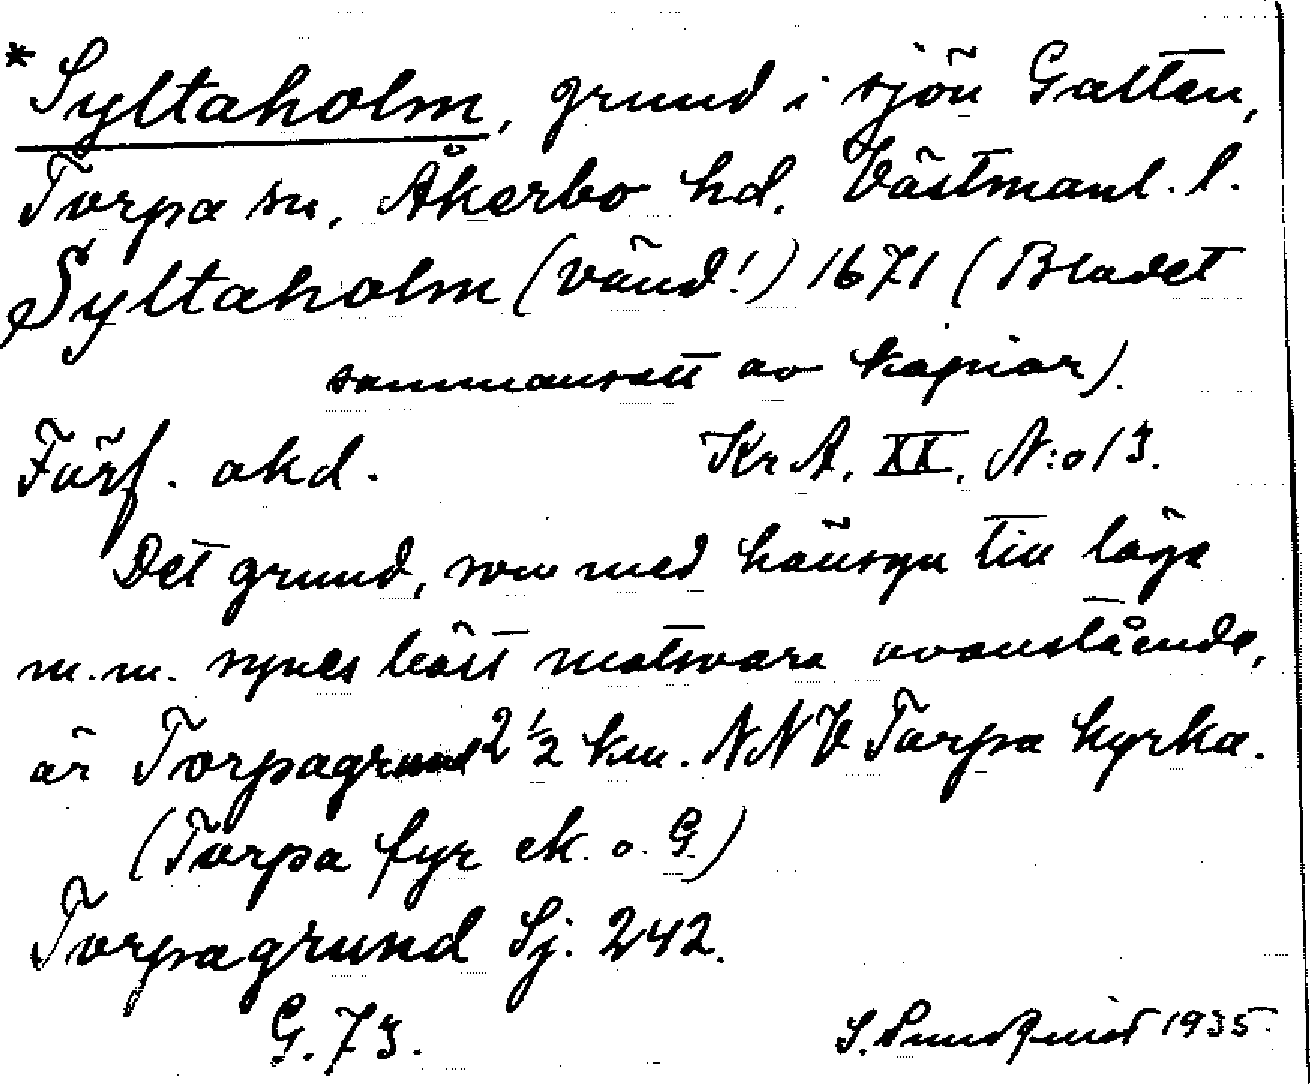 *Syltaholm, grund i sjön Galten,
Torpa sn. Åkerbo hd. Västmanl. l.
Syltaholm (vänd!) 1671 (Bladet
sammansatt av kopior).
Förf. okd. Kr A. XX. N:o 13.
Det grund, som med hänsyn till läge
m.m. synes bäst motsvara ovanstående,
är Torpagrund 2 1/2 km. NNV Torpa kyrka.
(Torpa fyr ek. o. G.)
Torpagrund Sj. 242.
G. 73. S. Lundqvist 1935